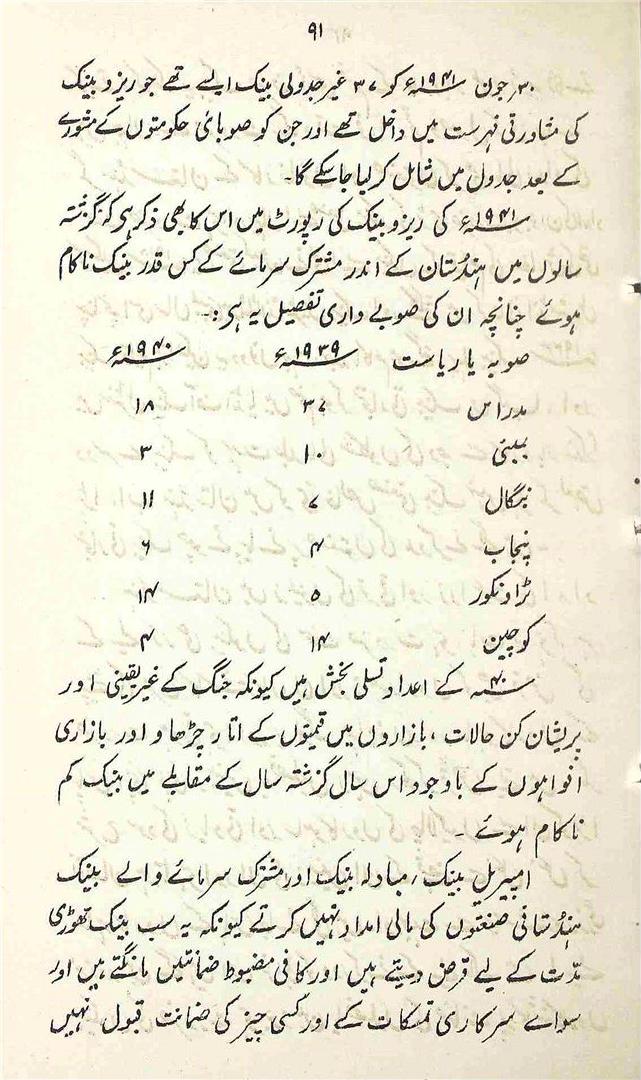 ۹۱
۳۰؍جون ۱۹۴۱؁ء کو ۳۷ غیر جدولی بینک ایسے تھے جو ریزو بینک
کی مشاورتی فہرست میں داخل تھے اور جن کو صوبائی حکومتوں کے مشورے
کے بعد جدول میں شامل کر لیا جاسکے گا۔
۱۹۴۱؁ء کی ریزو بینک کی رپورٹ میں اس کا بھی ذکر ہی کہ گزشتہ
سالوں میں ہندُستان کے اندر مشترک سرمائے کے کس قدر بینک ناکام
ہوئے چنانچہ ان کی صوبے داری تفصیل یہ ہی:۔
صوبہ یا ریاست ۱۹۳۹؁ء ۱۹۴۰؁ء
مدراس ۳۷ ۱۸
بمبئی ۱۰ ۳
بنگال ۷ ۱۱
پنجاب ۴ ۶
ٹراونکور ۵ ۱۴
کوچین ۱۴ ۴
۴۰؁ کے اعداد تسلی بخش ہیں کیونکہ جنگ کے غیر یقینی اور
پریشان کن حالات، بازاروں میں قیمتوں کے اتار چڑھاو اور بازاری
افواہوں کے باوجود اس سال گزشتہ سال کے مقابلے میں بینک کم
ناکام ہوئے۔
امپیریل بینک، مبادلہ بینک اور مشترک سرمائے والے بینک
ہندُستانی صنعتوں کی مالی امداد نہیں کرتے کیونکہ یہ سب بینک تھوڑی
مدّت کے لیے قرض دیتے ہیں اور کافی مضبوط ضمانتیں مانگتے ہیں اور
سواے سرکاری تمسکات کے اور کسی چیز کی ضمانت قبول نہیں